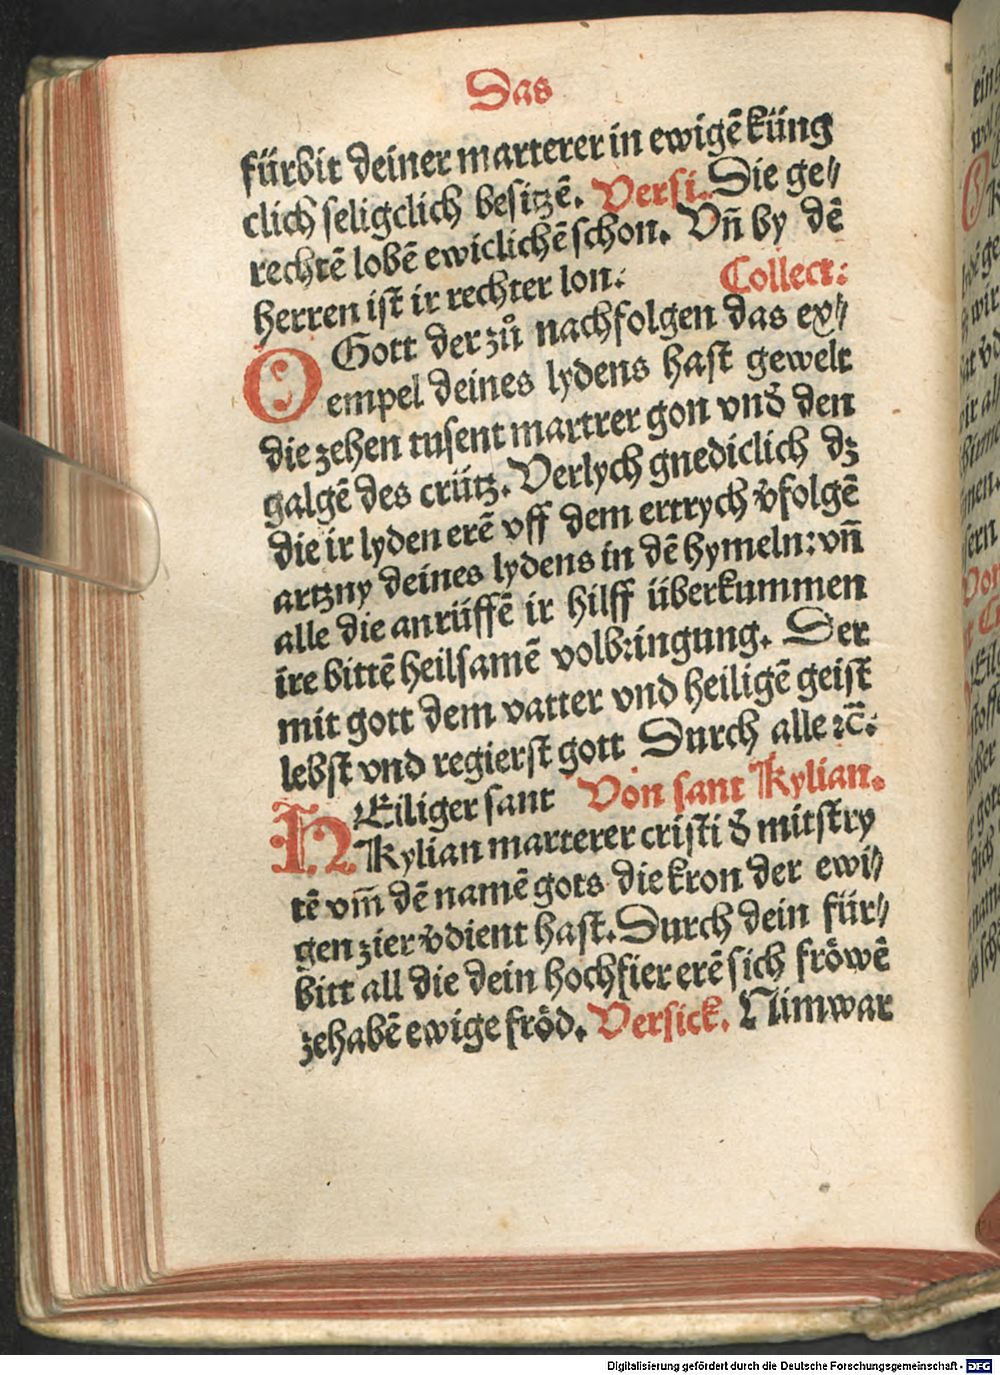 Das
fürbit deiner marterer in ewigē küng
clich seligclich besitzē. Versi. Die ge⸗
rechtē lobē ewiclichē schon. Vn̄ by dē
herren ist ir rechter lon: Collect:
O Gott der zů nachfolgen das ex⸗
empel deines lydens hast gewelt
die zehen tusent martrer gon vnd̕ den
galgē des crütz. Verlych gnediclich dz
die ir lyden erē vff dem ertrych v̕folgē
artzny deines lydens in dē hymeln: vn̄
alle die anrüffē ir hilff überkummen
ire bittē heilsamē volbringung. Der
mit gott dem vatter vnd heiligē geist
lebst vnd regierst gott Durch alle ꝛc̄:
HEiliger sant Von sant Kylian.
Kylian marterer cristi d̕ mitstry
tē vm̄ dē namē gots die kron der ewi⸗
gen zier v̕dient hast. Durch dein für⸗
bitt all die dein hochfier erē sich fröwē
zehabē ewige fröd. Versick. Nimwar
Digitalisierung gefördert durch die Deutsche Forschungsgemeinschaft - DFG